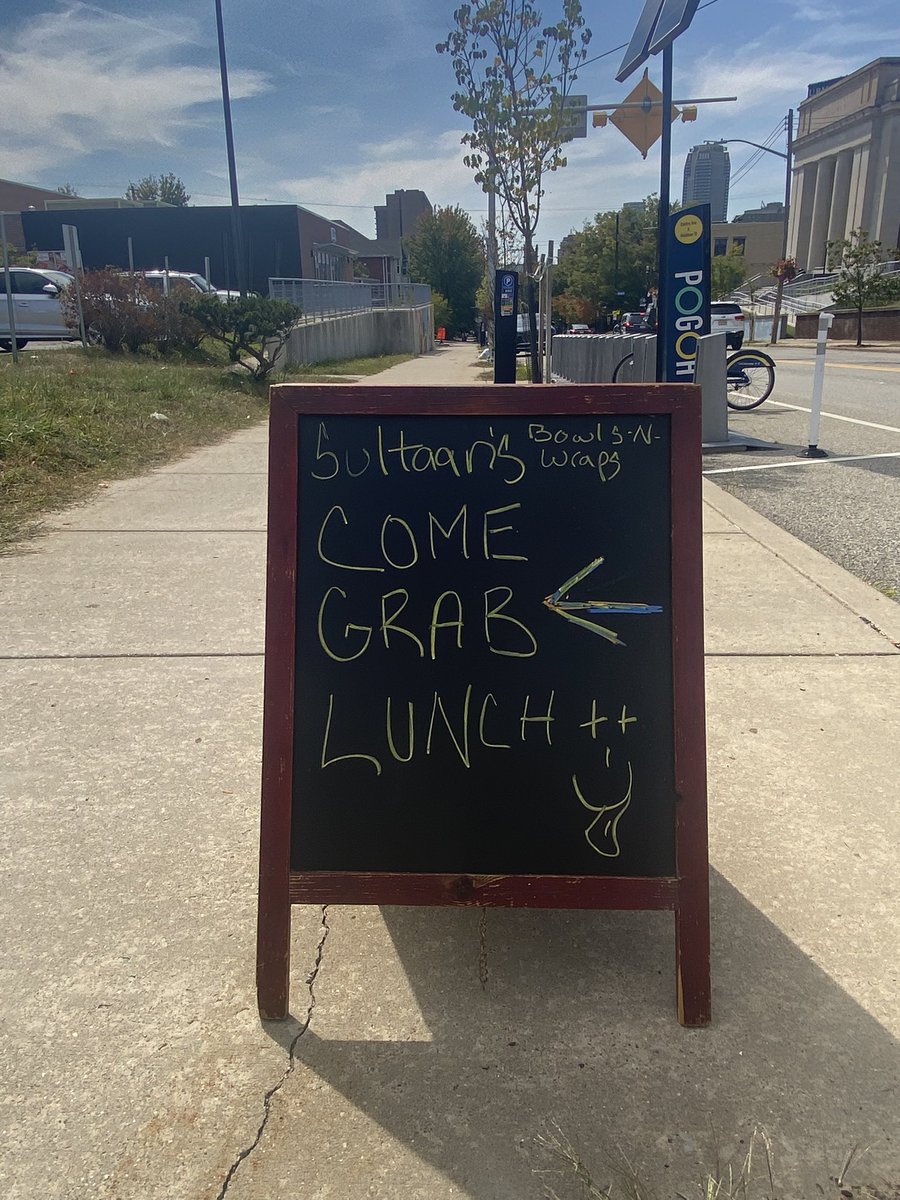 Sultaan's Bowls-N-
Wraps
COME
GRAB
LUNCH
POGOH
P